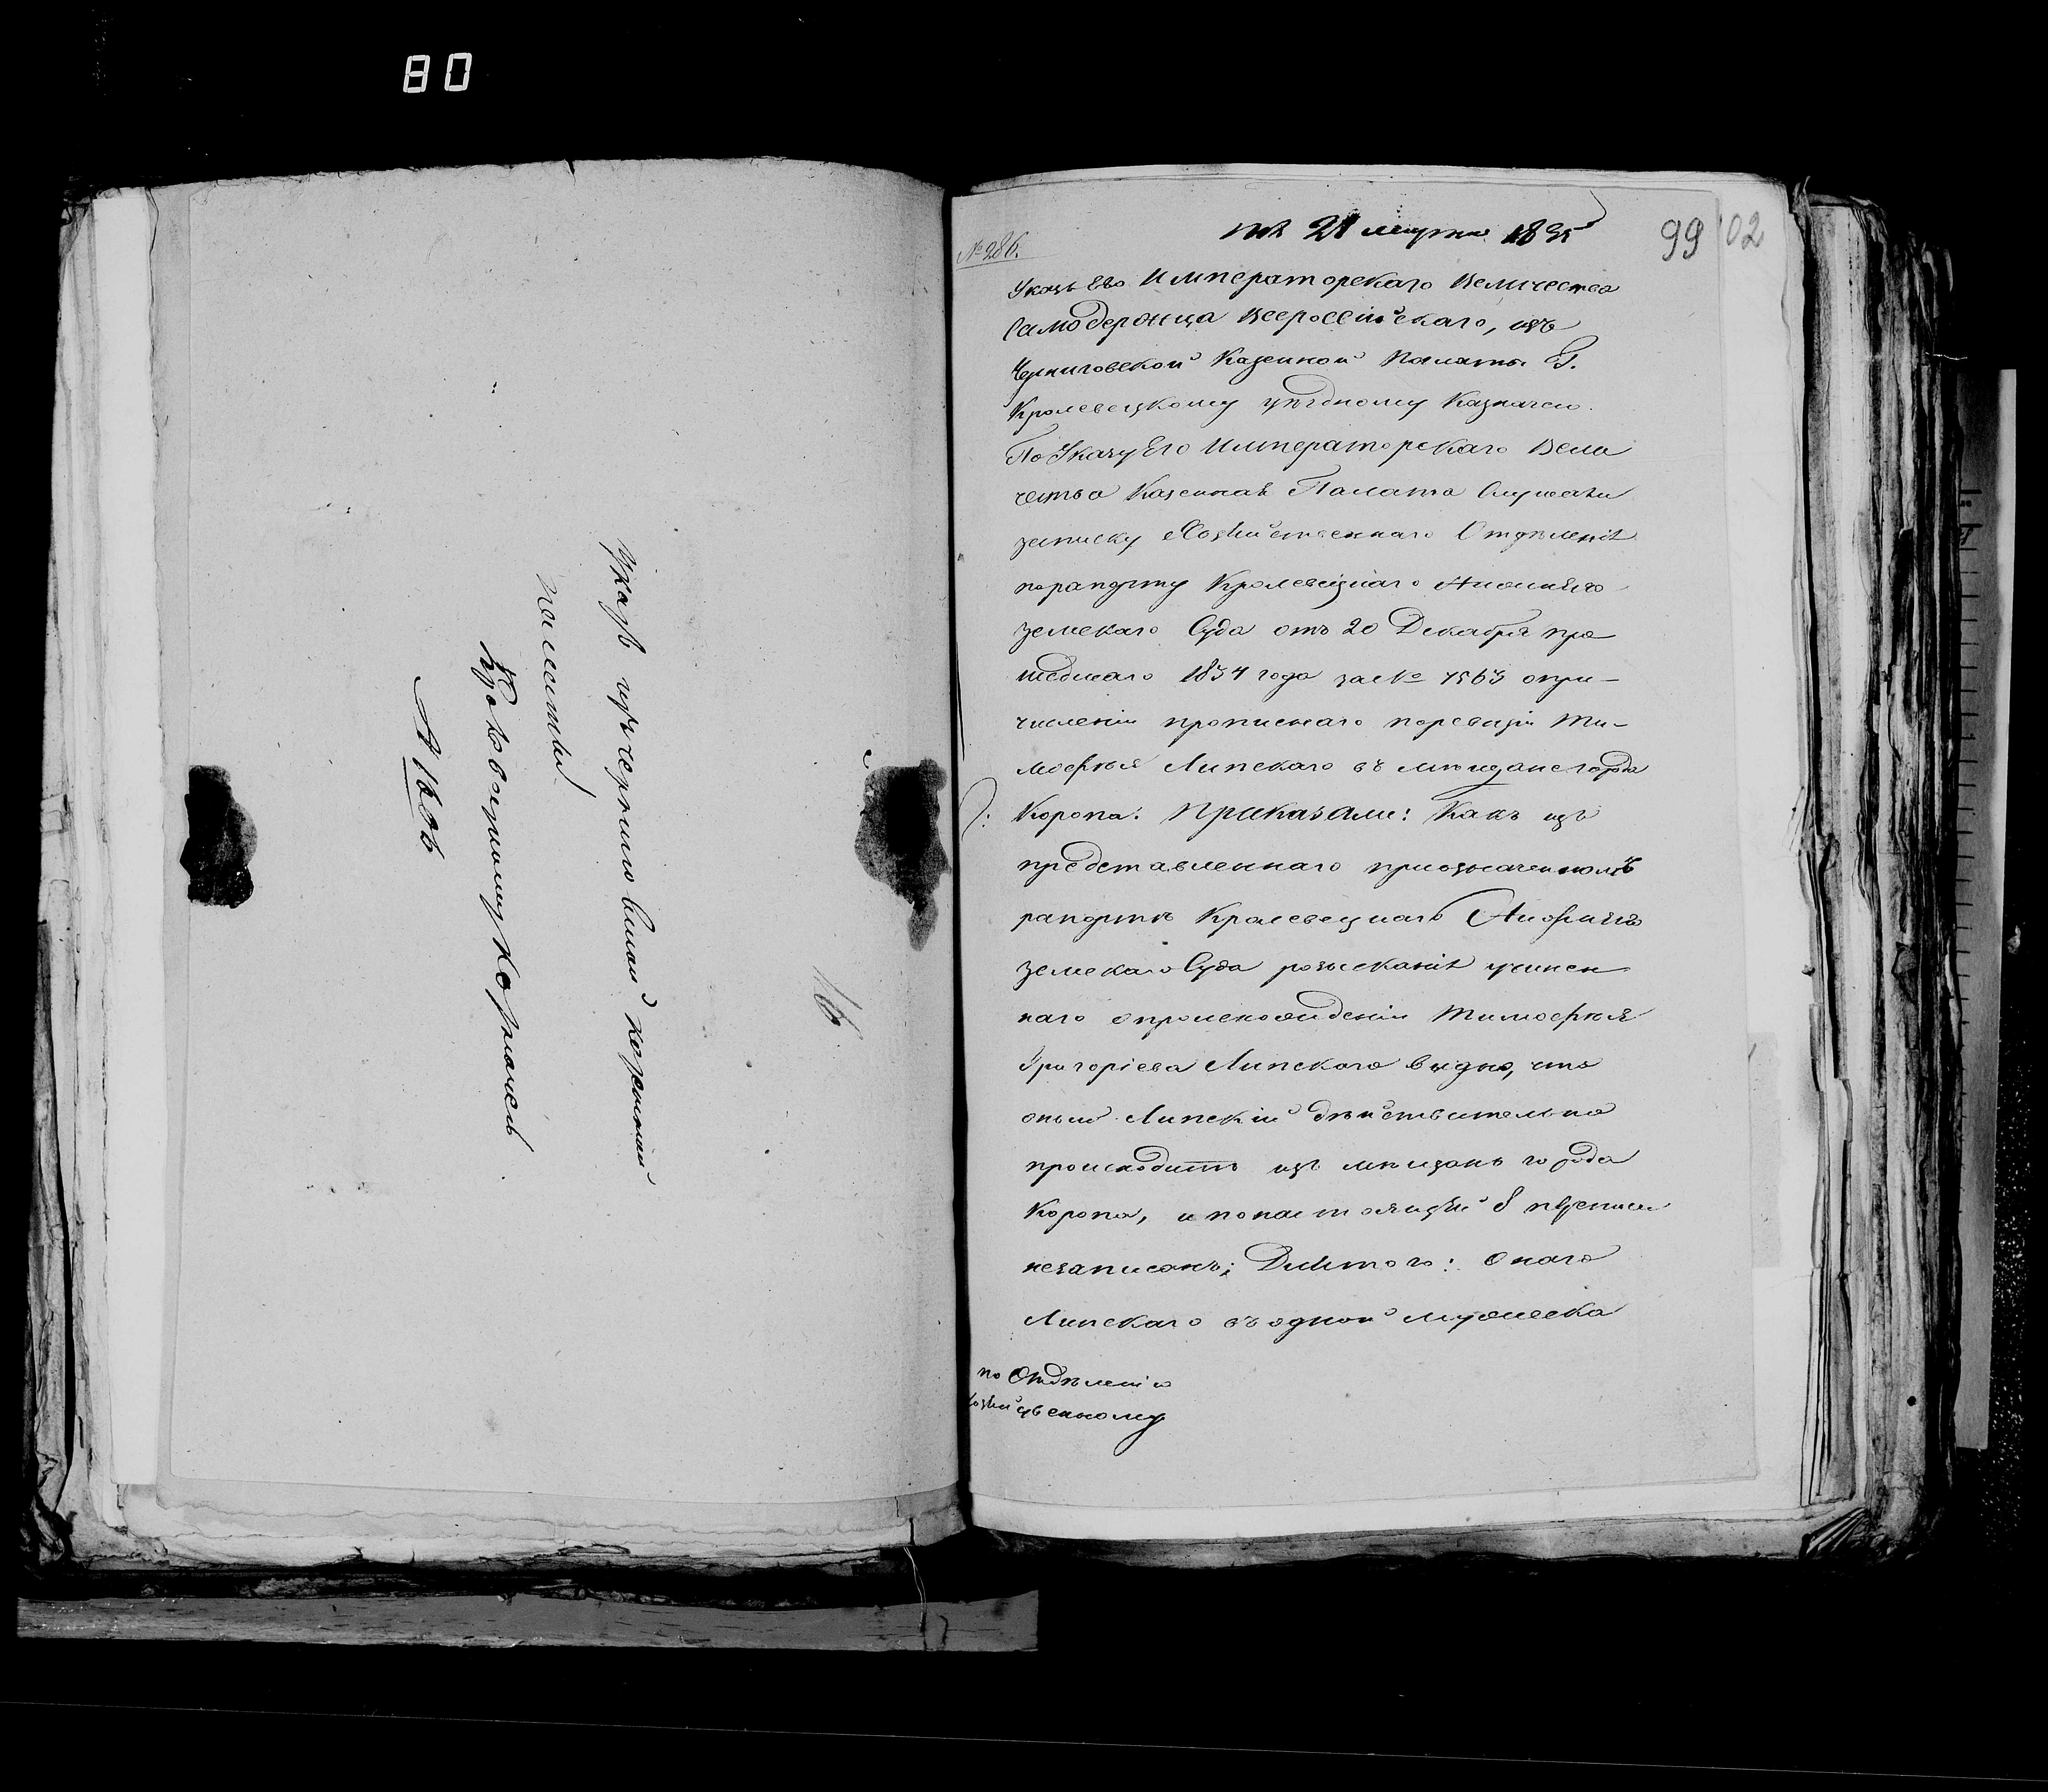 80
Указъ изъ черниговской казенной
палаты
Кролевецкому Казначею
16
99 102
21 марта 1835
№ 286.
Указъ Его Императорскаго Величества
Самодержца Всероссійскаго, изъ
Черниговской Казенной Палаты Г.
Кролевецкому уѣздному Казначею.
По Указу Его Императорскаго Вели
чества Казенная Палата Слушали
записку Хозяйственнаго Отдѣленія
порапорту Кролевецкаго Нижняго
земскаго Суда отъ 20 Декабря про
шедшаго 1834 года за № 7563 опри-
численіи прописнаго поревизіи Ти-
мофея Липскаго въ мещане города
Коропа. Приказали: Какъ изъ
представленнаго приозначенномъ
рапортѣ Кролевецкаго Нижняго
земскаго Суда розысканія учинен
наго опроисхожденіи Тимофея
Григоріева Липскаго видно, что
оный Липскій дѣйствительно
происходитъ изъ мещанъ города
Коропа, и понастоящей 8 переписи
незаписанъ; Для того: Онаго
Липскаго въ одной мужеска
по Отдѣленію
Хозяйственному